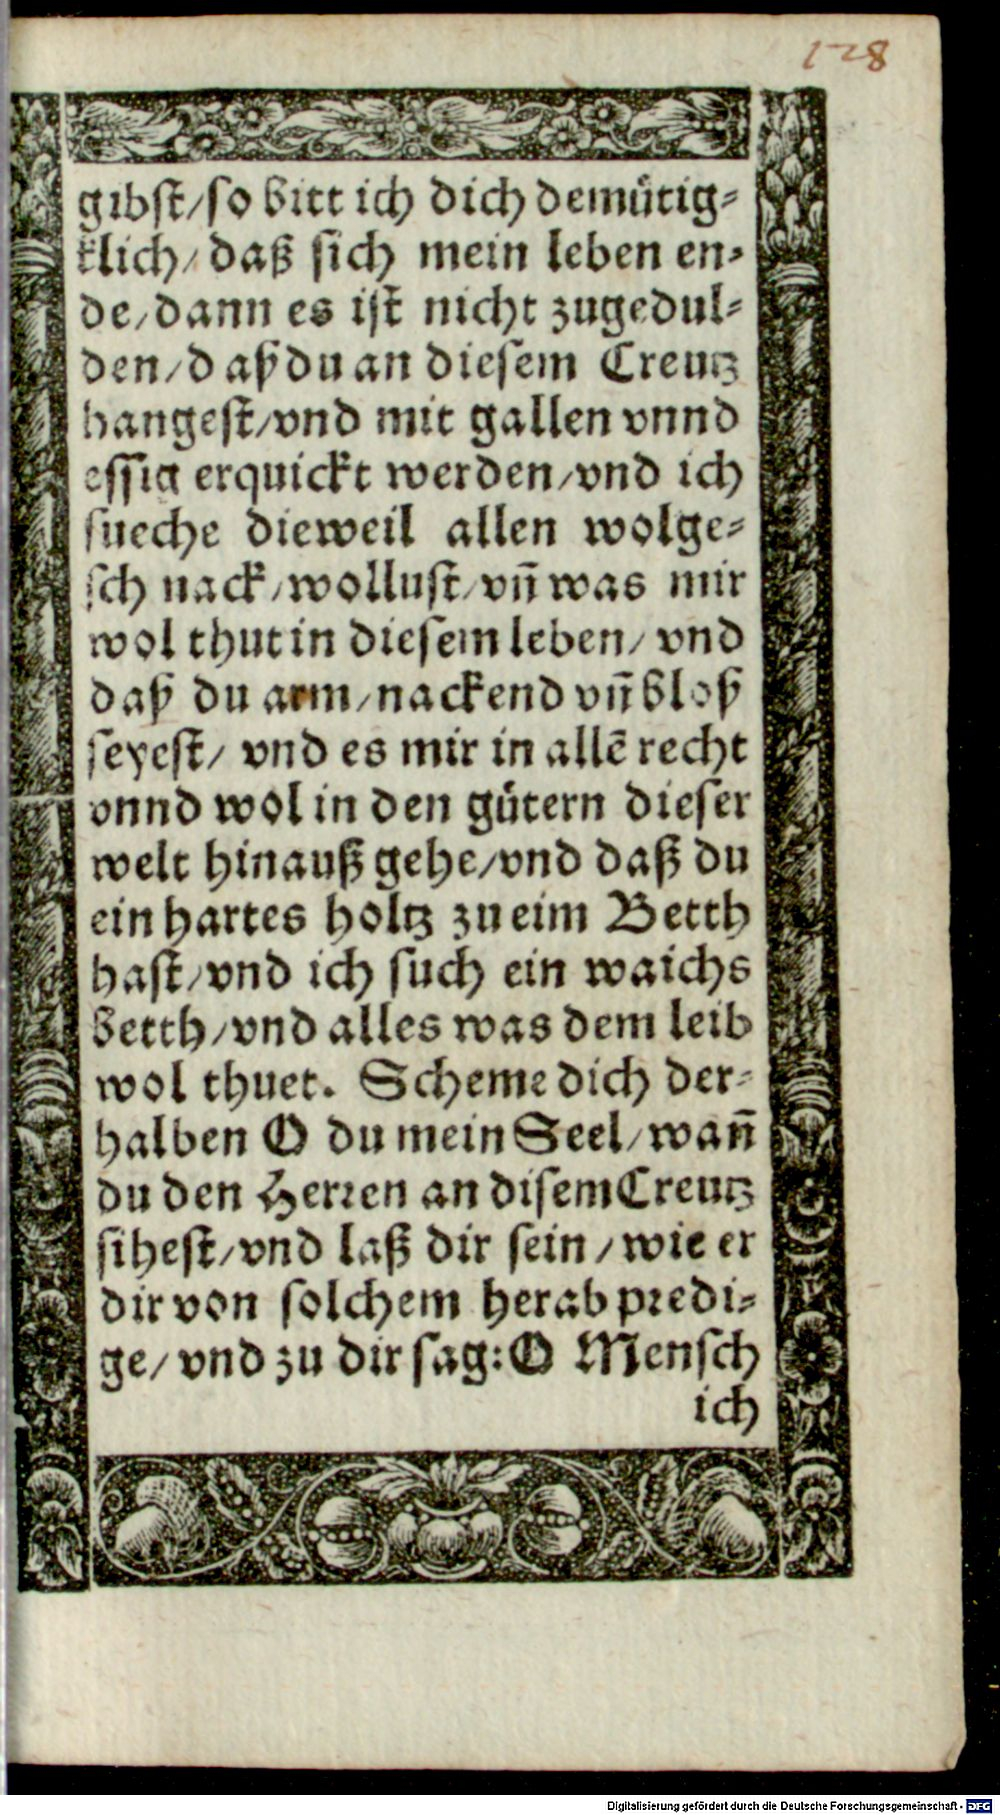 128
gibst/so bitt ich dich demuͤtig⸗
klich/ daß sich mein leben en⸗
de/dann es ist nicht zugedul⸗
den/daß du an diesem Creutz
hangest/vnd mit gallen vnnd
essig erquickt werden/vnd ich
sueche dieweil allen wolge⸗
schmack/wollust/vñ was mir
wol thut in diesem leben/ vnd
daß du arm/nackend vñ bloß
seyest/ vnd es mir in allẽ recht
vnnd wol in den guͤtern dieser
welt hinauß gehe/vnd daß du
ein hartes holtz zu eim Betth
hast/vnd ich such ein waichs
betth/vnd alles was dem leib
wol thuet. Scheme dich der⸗
halben O du mein Seel/wañ
du den Herren an disem Creutz
sihest/vnd laß dir sein/wie er
dir von solchem herab predi⸗
ge/ vnd zu dir sag: O Mensch
ich
Digitalisierung gefördert durch die Deutsche Forschungsgemeinschaft - DFG